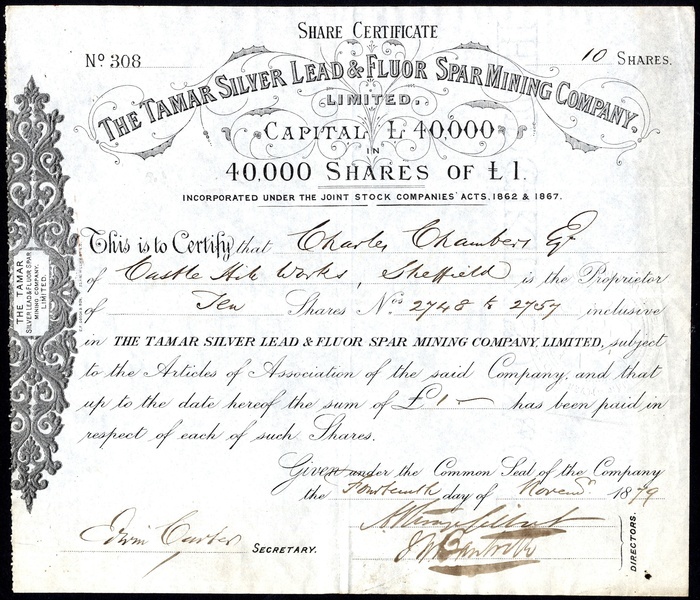 SHARE CERTIFICATE
No 308
10 SHARES.
THE TAMAR SILVER LEAD & FLUOR SPAR MINING COMPANY,
LIMITED.
CAPITAL £ 40,000
IN
40,000 SHARES OF £1.
INCORPORATED UNDER THE JOINT STOCK COMPANIES' ACTS, 1862 & 1867.
This is to Certify that Charles Chambers Esq
of Castle Hill Works, Sheffield is the Proprietor
of Ten Shares Nos 2748 to 2757 inclusive
in THE TAMAR SILVER LEAD & FLUOR SPAR MINING COMPANY, LIMITED, subject
to the Articles of Association of the said Company, and that
up to the date hereof the sum of £1 — has been paid in
respect of each of such Shares.
Given under the Common Seal of the Company
the Fourteenth day of Novem. 1879
Edwin Carter SECRETARY.
DIRECTORS.
THE TAMAR
SILVER LEAD & FLUOR SPAR
MINING COMPANY,
LIMITED.